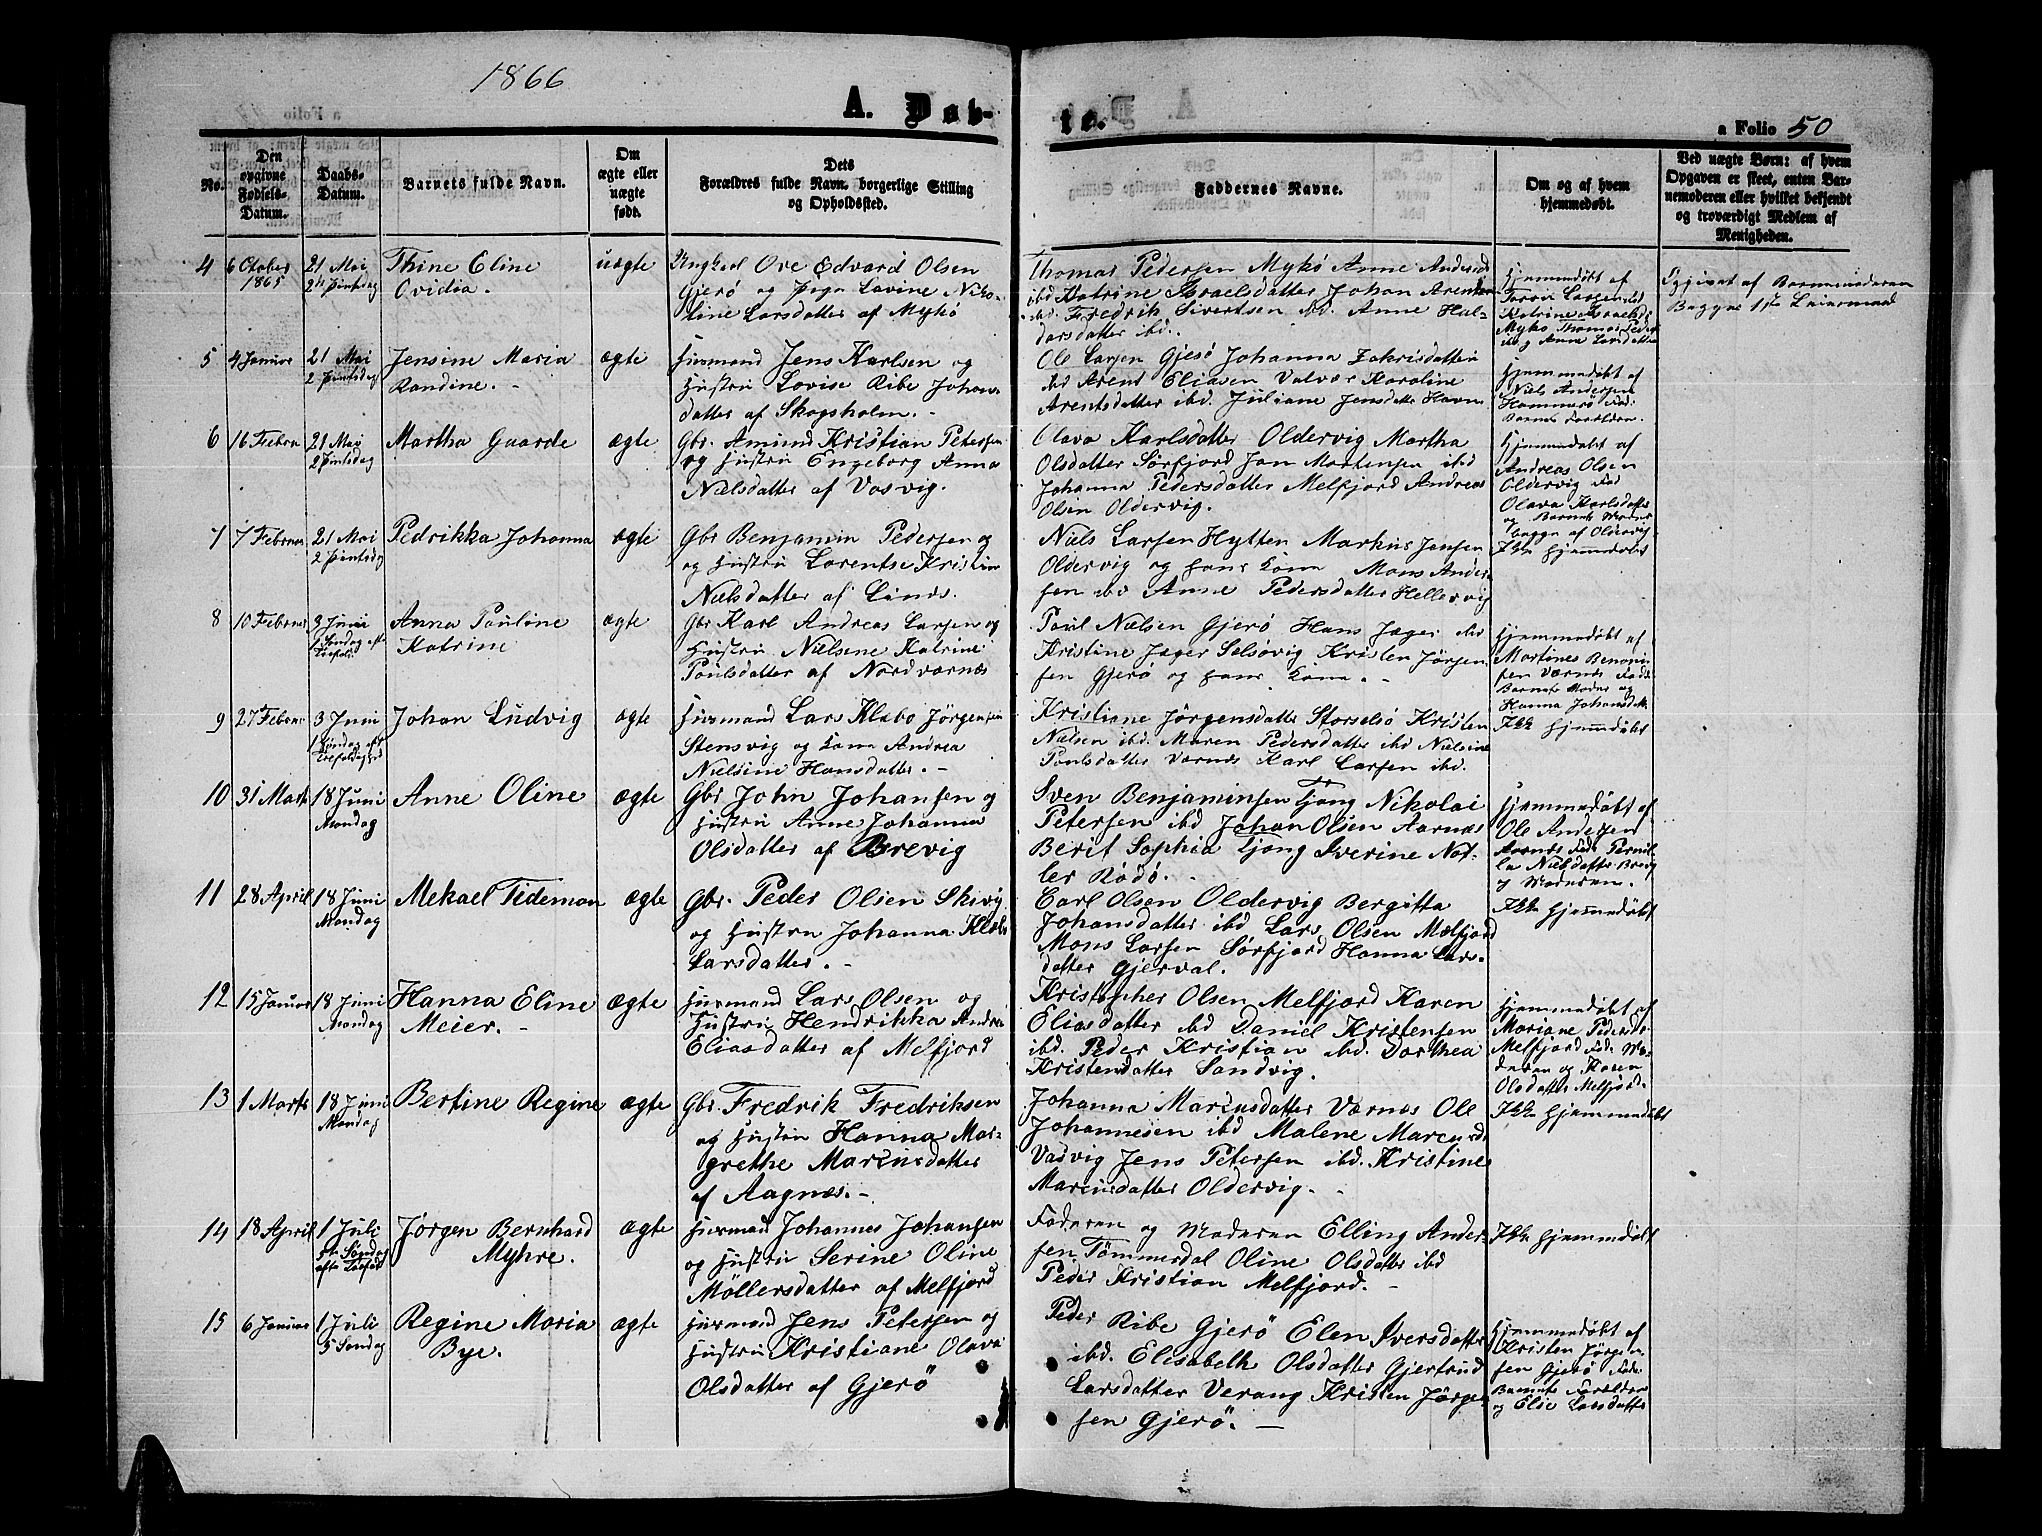 1866
A. Døb-
te.
a Folio 50
No.
Den opgivne Fødsels-Datum.
Daabs-Datum.
Barnets fulde Navn.
Om ægte eller uægte født.
Dets Forældres fulde Navn, borgerlige Stilling og Opholdssted.
Faddernes Navne.
Om og af hvem hjemmedøbt.
Ved uægte Børn: af hvem Opgaven er skeet, enten Barnemoderen eller hvilket bekjendt og troværdigt Medlem af Menigheden.
4
6 Octaber 1865
21 Mai
Thine Eline
Ovidia.
uægte
Ungkarl Ove Edvard Olsen
Gjerö og Pige Lavine Niko-
line Larsdatter af Mykö
Thomas Pedersen Mykö Anne
ibd Katrine Israelsdatter Johan Arentsen
ibd. Fredrik Sivertsen ibd. Anne Hal-
dorsdatter ibd.
Hjemmedöbt af
5
4 Januar
21 Mai
2 Pintsdag
Jensine Maria
Randine. -
ægte
Huusmand Jens Karlsen og
Hustru Lovise Ribe Johans-
datter af Skogsholm. -
Ole Larsen Gjesö Johanna Zakrisdatter
ibd Arent Eliasen Valvær Karoline
Arentsdatter ibd. Juliane Jensdatter Havn
Hjemmedöbt af
Niels Andersen
6
16 Februar
21 Mai
2 Pintsdag
Martha Gaarde
ægte
Gbr. Amund Kristian Petersen
og Hustru Engeborg Anna
Nælsdatter af Vosvig.
Olava Karlsdatter Oldervig Martha
Olsdatter Sørfjord Jan Mortensen ibd
Johanna Pedersdatter Melfjord Andreas
Olsen Oldervig.
Hjemmedöbt af
Andreas Olsen
Oldervig
Olava Karlsdatter
7
7 Februar
21 Mai
2 Pintsdag
Pedrikka Johanna
ægte
Gbr Benjamin Pedersen og
og Hustru Lorentse Kristine
Nælsdatter af Linds.
Næls Larsen Hytten Markus Jensen
Oldervig og hans Kona Mons Ander-
sen ibd Anne Pedersdatter Hellervig
Ikke Hjemmdöbt
8
10 Februar
3 Juni
Anna Pauline
Katrine
ægte
Gbr Karl Andreas Larsen og
Hustru Nælsene Katrine
Poulsdatter af Nordværnæs
Poul Nælsen Gjerö Hans Jæger ibd
Kristine Jæger Selsövig Kristen Jörgen-
sen Gjerö og hans Kona. -
Hjemmedöbt af
Hanna Johansdatter
9
27 Februar
3 Juni
Johan Ludvig
ægte
Huusmand Lars Klabo Jörgensen
Stensvig og Kona Andrea
Nielsine Hansdatter. -
Kristiane Jörgensdatter Storselsö Kristen
Nælsen ibd. Maren Pedersdatter ibd Nælsine
Poulsdatter Værnæs Karl Larsen ibd.
Ikke Hjemmdöbt
10
31 Marts
18 Juni
Mandag
Anne Oline
ægte
Gbr John Johansen og
Hustru Anne Johanna
Olsdatter af Brevig
Sven Benjaminsen Tjong Nikolai
Petersen ibd Johan Olsen Aarnæs
Berit Sophia Tjong Iverine Not-
ler Rödö. -
Hjemmedöbt af
Ole Andersen
11
28 April
18 Juni
Mandag
Mekael Tideman
ægte
Gbr. Peder Olsen Skivig
og Hustru Johanna Klabo
Larsdatter. -
Carl Olsen Oldervig Bergitta
Johansdatter ibd Lars Olsen Mælfjord
Mons Larsen Sørfjord Hanna Lars-
datter Gjerval.
Ikke Hjemmedöbt
12
15 Januar
18 Juni
Mandag
Hanna Eline
Meier. -
ægte
Huusmand Lars Olsen og
Hustru Hendrikka Andrea
Eliasdatter af Melfjord
Kristopher Olsen Melfjord Karen
Eliasdatter ibd Daniel Kristensen
ibd. Peder Kristian ibd. Dorthea
Kristensdatter Sandvig.
Hjemmedöbt af
Mariane Peders
Melfjord
og Karen
Olsdatter Melfjord.
13
1 Marts
18 Juni
Mandag
Bertine Regine
ægte
Gbr. Fredrik Fredriksen
og Hustru Hanna Mar-
grethe Marcusdatter
af Aagnæs. -
Johanna Marcusdatter Værnæs Ole
Johannesen ibd Malene Marcusd.
Vasvig Jens Petersen ibd. Kristine
Marcusdatter Oldervig. -
Ikke Hjemmedöbt
14
18 April
1 Juli
Jørgen Bernhard
Myhre.
ægte
Huusmand Johannes Johansen
og Hustru Serine Oline
Möllersdatter af Melfjord
Faderen og Moderen Elling Ander-
sen Tömmerdal Oline Olsdatter ibd
Peder Kristian Melfjord. -
Ikke Hjemmdöbt
15
6 Januar
1 Juli
5 Söndag
Regine Maria
Bye.
ægte
Huusmand Jens Petersen og
Hustru Kristiane Olava
Olsdatter af Gjerö
Peder Ribe Gjerö Elen Iversdatter
ibd. Elisabeth Olsdatter Gjertrud
Larsdatter Verang Kristen Jörgen-
sen Gjerö. -
Hjemmedöbt af
Kristen Jörgen-
sen Gjerö
og Elie Larsdatter